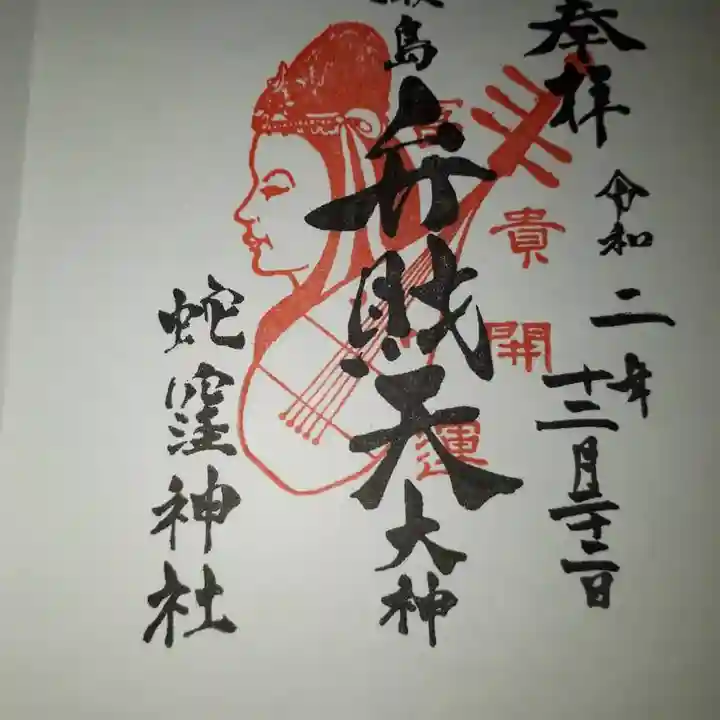 奉拝
令和二年
十二月二十二日
島
弁財天
大神
貴
開
運
蛇窪神社